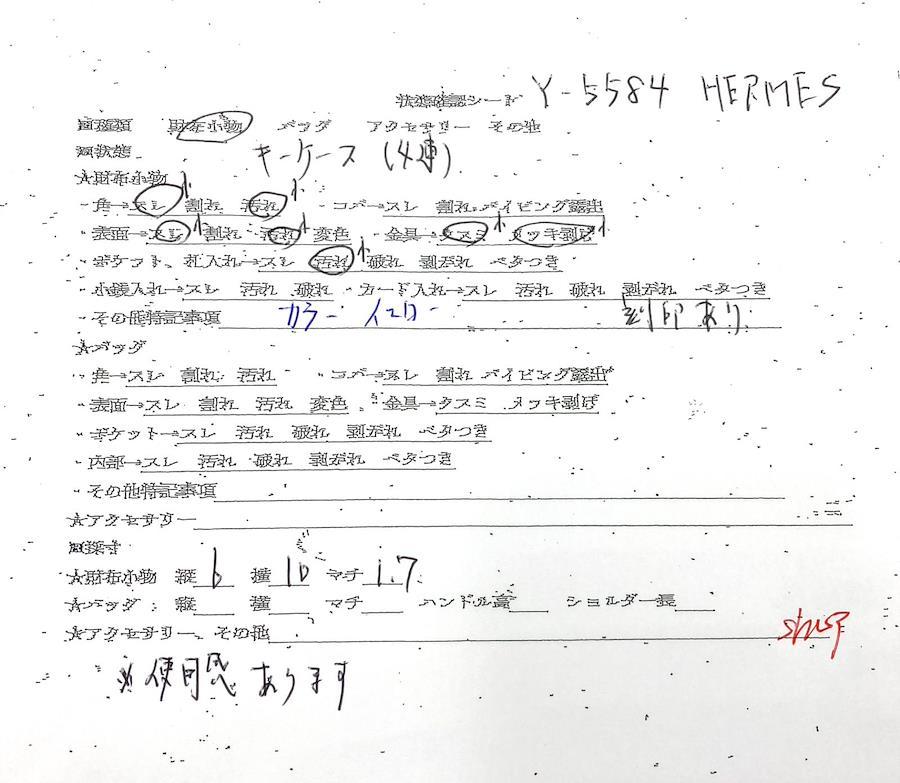 状態確認シート Y-5584 HERMES
■種類 財布小物 バッグ アクセサリー その他
■状態 キーケース (4連)
★財布小物
・角→スレ小 割れ 汚れ小 ・コバ→スレ 割れ パイピング露出
・表面→スレ小 割れ 汚れ小 変色 ・金具→クスミ小 メッキ剥げ小
・ポケット、札入れ→スレ 汚れ小 破れ 剥がれ ベタつき
・小銭入れ→スレ 汚れ 破れ ・カード入れ→スレ 汚れ 破れ 剥がれ ベタつき
・その他特記事項 カラー イエロー 刻印あり
★バッグ
・角→スレ 割れ 汚れ ・コバ→スレ 割れ パイピング露出
・表面→スレ 割れ 汚れ 変色 ・金具→クスミ メッキ剥げ
・ポケット→スレ 汚れ 破れ 剥がれ ベタつき
・内部→スレ 汚れ 破れ 剥がれ ベタつき
・その他特記事項
★アクセサリー
■採寸
★財布小物 縦 6 横 10 マチ 1.7
★バッグ: 縦 横 マチ ハンドル高 ショルダー長
★アクセサリー、その他
※使用感あります